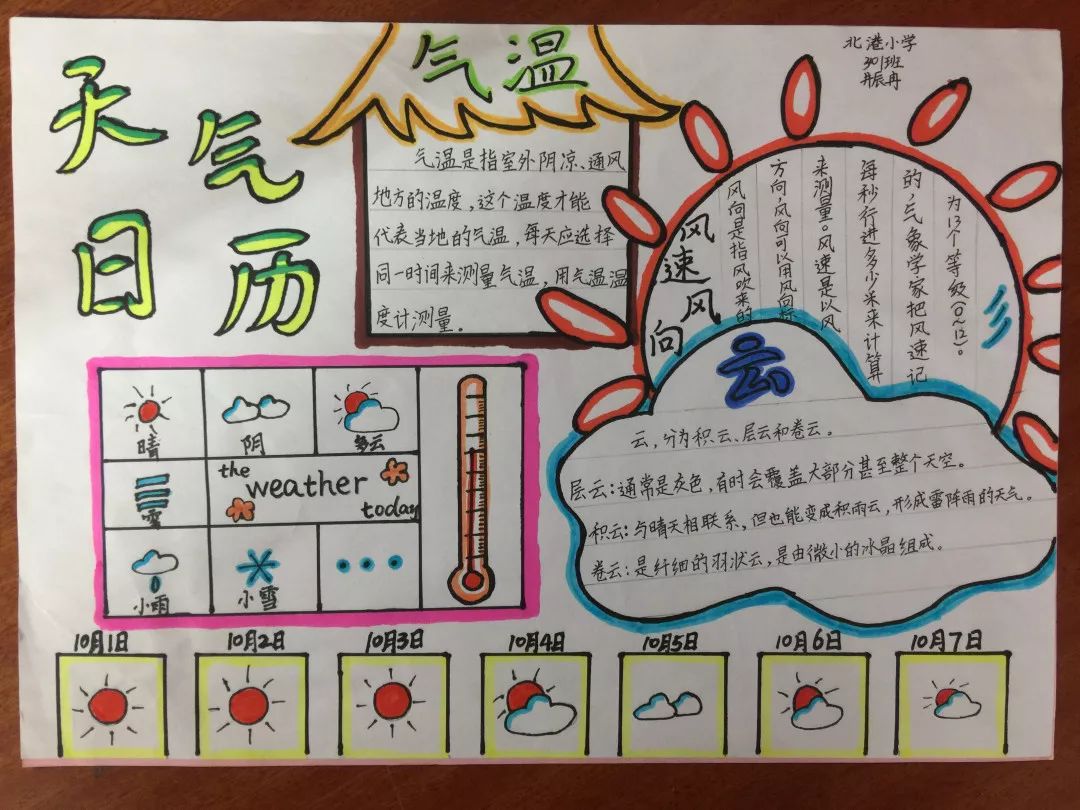 天气
日历
气温
北港小学
301班
气温是指室外阴凉、通风
地方的温度,这个温度才能
代表当地的气温,每天应选择
同一时间来测量气温,用气温温
度计测量。
风速风向
风向是指风吹来的
方向,风向可以用风向标
来测量。风速是以风
每秒行进多少米来计算
的,气象学家把风速记
为13个等级(0~12)。
云
云,分为积云、层云和卷云。
层云:通常是灰色,有时会覆盖大部分甚至整个天空。
积云:与晴天相联系,但也能变成积雨云,形成雷阵雨的天气。
卷云:是纤细的羽状云,是由微小的冰晶组成。
晴
阴
多云
the
weather
today
小雨
小雪
10月1日
10月2日
10月3日
10月4日
10月5日
10月6日
10月7日